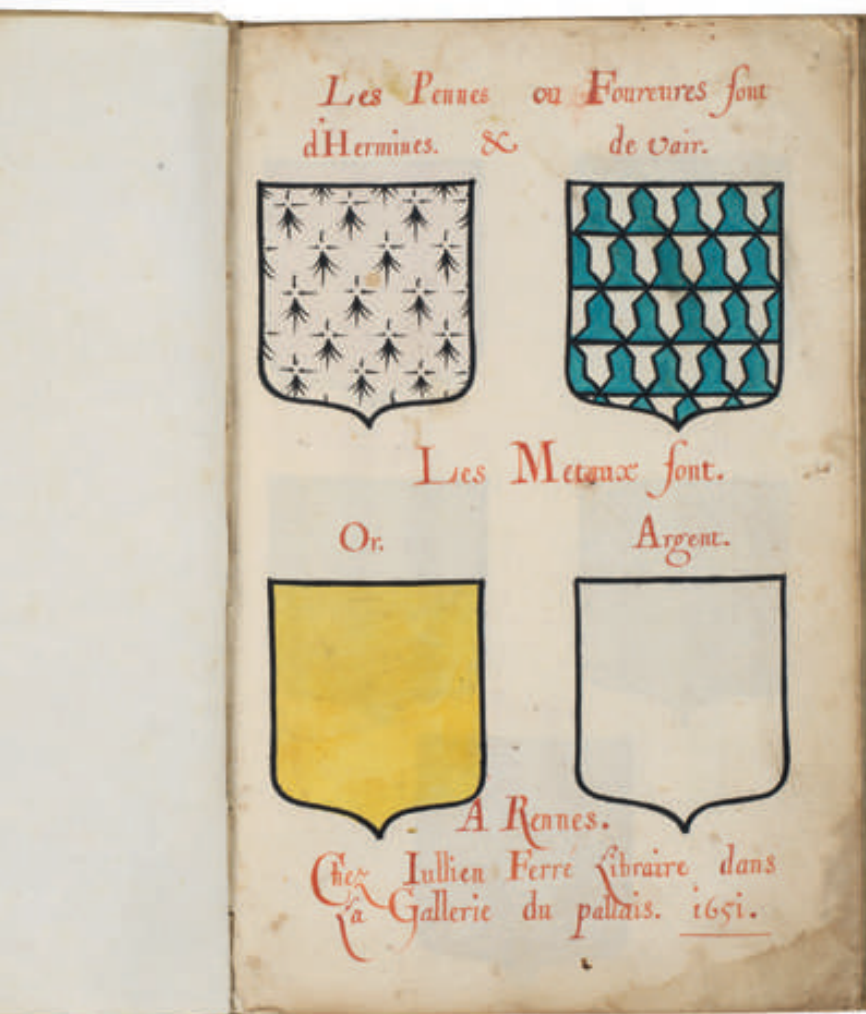 Les Pennes ou Foureures sont
d'Hermines. & de vair.
Les Metaux sont.
Or. Argent.
A Rennes.
Chez Iullien Ferré Libraire dans
La Gallerie du pallais. 1651.